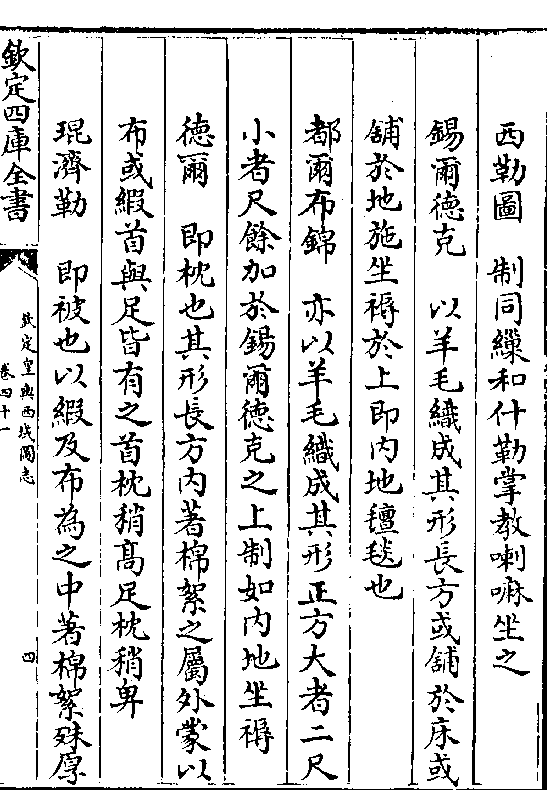 西勒圖　制同繅和什勒掌教喇嘛坐之
錫爾德克　以羊毛織成其形長方或鋪於床或
鋪於地施坐褥於上即內地氊毯也
都爾布錦　亦以羊毛織成其形正方大者二尺
小者尺餘加於錫爾德克之上制如內地坐褥
德爾　即枕也其形長方內著棉絮之屬外蒙以
布或緞首與足皆有之首枕稍髙足枕稍卑
琨濟勒　即被也以緞及布為之中著棉絮殊厚
欽定四庫全書
欽定皇輿西域圖志
卷四十一
四